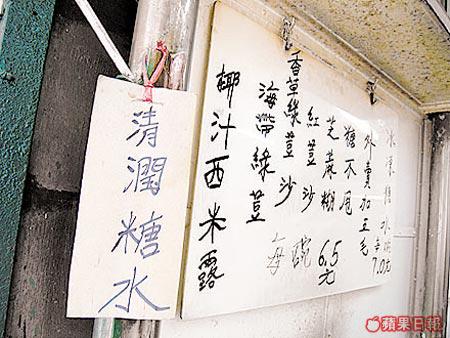 清潤糖水
椰汁西米露
海帶綠荳
香草綠荳沙
紅荳沙
芝蔴糊
糖不甩
每碗6.5元
外賣加五毛
冰凍糖水每碗7.0元
蘋果日報